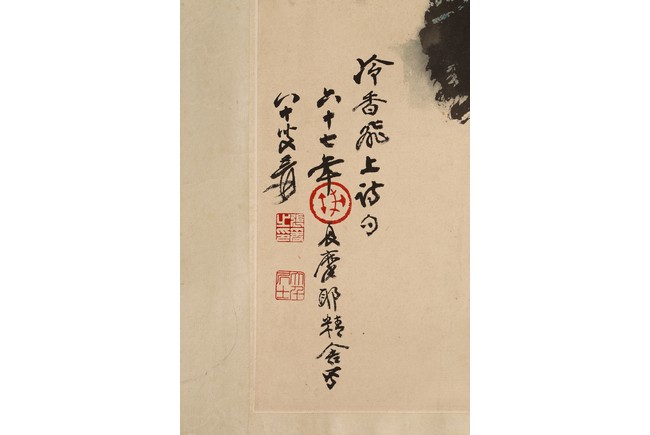 冷香飛上詩句
六十七年 摩耶精舍寫
八十叟爰
張爰之印
大千居士